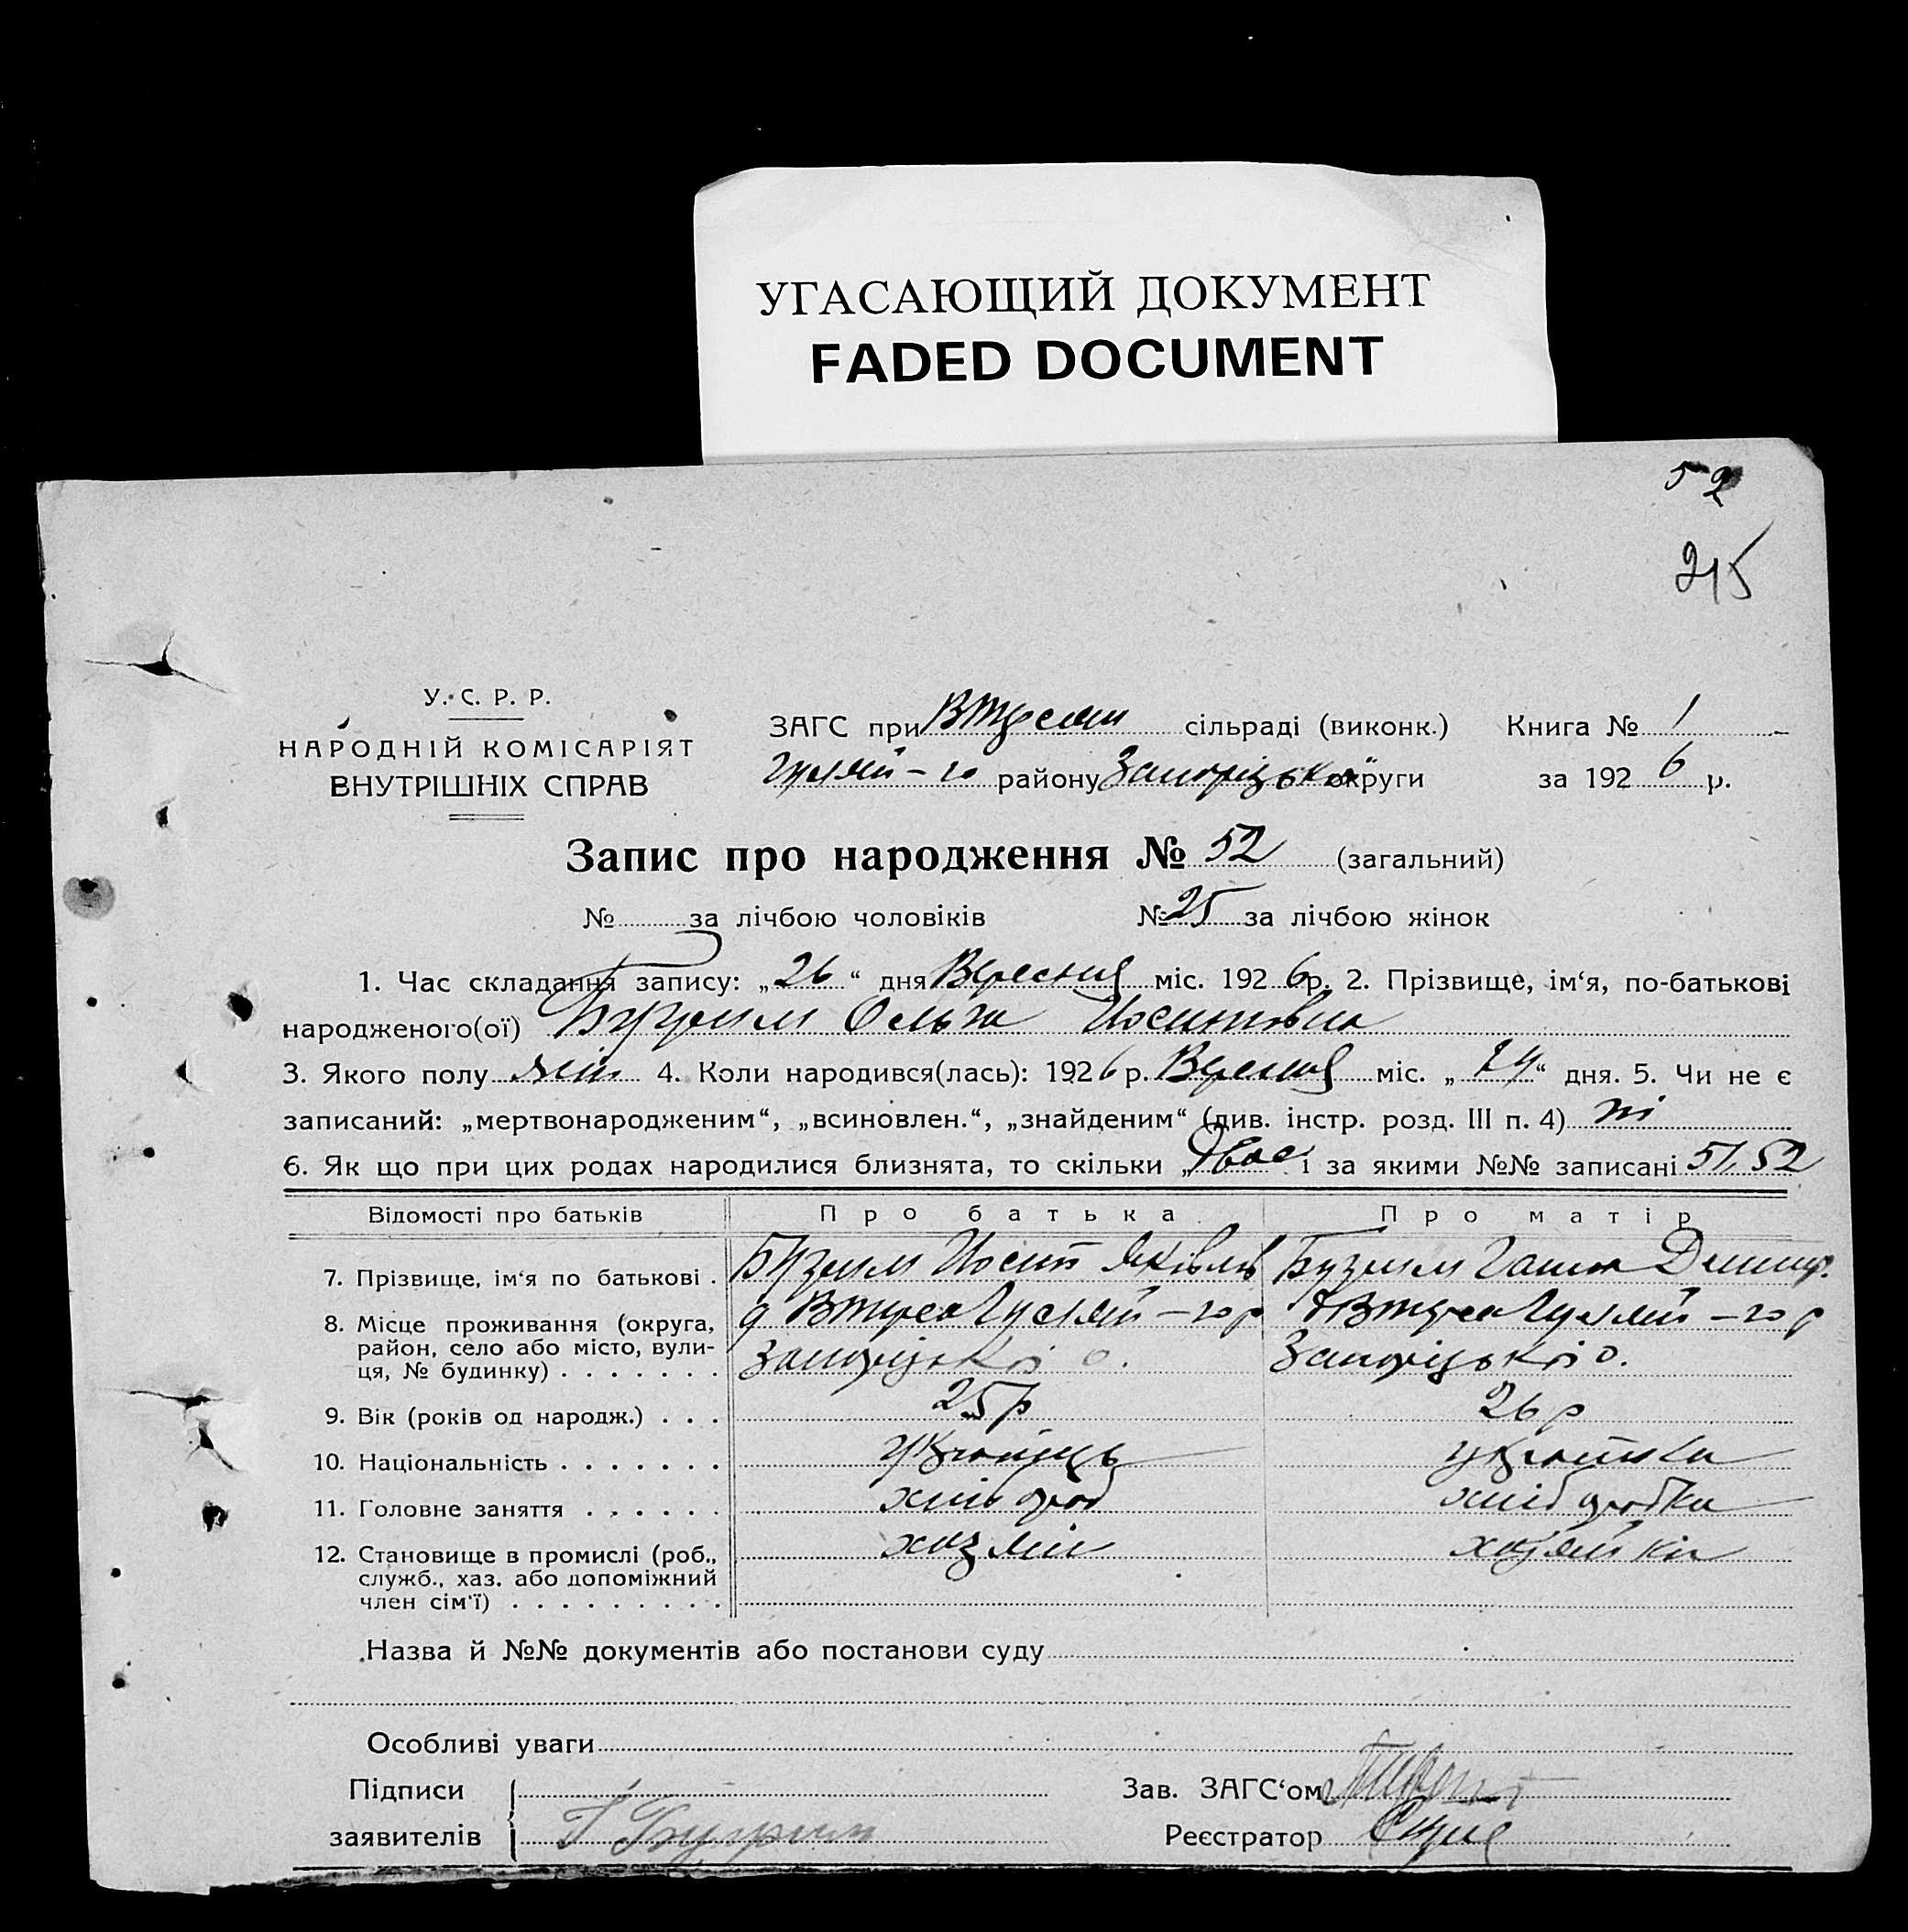 УГАСАЮЩИЙ ДОКУМЕНТ
FADED DOCUMENT
52
215
У. С. Р. Р.
НАРОДНІЙ КОМІСАРІЯТ
ВНУТРІШНІХ СПРАВ
ЗАГС при сільраді (виконк.) Книга № 1
Гуляй-го району Запоріцької округи за 1926 р.
Запис про народження № 52 (загальний)
№ за лічбою чоловіків № 25 за лічбою жінок
1. Час складання запису: „26“ дня Вересня міс. 1926 р. 2. Прізвище, ім‘я, по-батькові
народженого(ої) Ольга Иосиповна
3. Якого полу жін 4. Коли народився(лась): 1926 р. Вересня міс. „24“ дня. 5. Чи не є
записаний: „мертвонародженим“, „всиновлен.“, „знайденим“ (див. інстр. розд. III п. 4) ні
6. Як що при цих родах народилися близнята, то скільки „двоє і за якими №№ записані 51, 52
Відомості про батьків Про батька Про матір
7. Прізвище, ім‘я по батькові . Иосип Яковлів Ганна Дмитр.
8. Місце проживання (округа, Гуляй-го р Гуляй-го р
район, село або місто, вули- Запоріцької о. Запоріцької о.
ця, № будинку) . . . . . . .
9. Вік (років од народж.) . . . 25 р 26 р
10. Національність . . . . . . . українець українка
11. Головне заняття . . . . . . хлібороб хліборобка
12. Становище в промислі (роб., хазяїн хазяйка
служб., хаз. або допоміжний
член сім‘ї) . . . . . . . . .
Назва й №№ документів або постанови суду
Особливі уваги
Підписи Зав. ЗАГС‘ом
заявителів Реєстратор